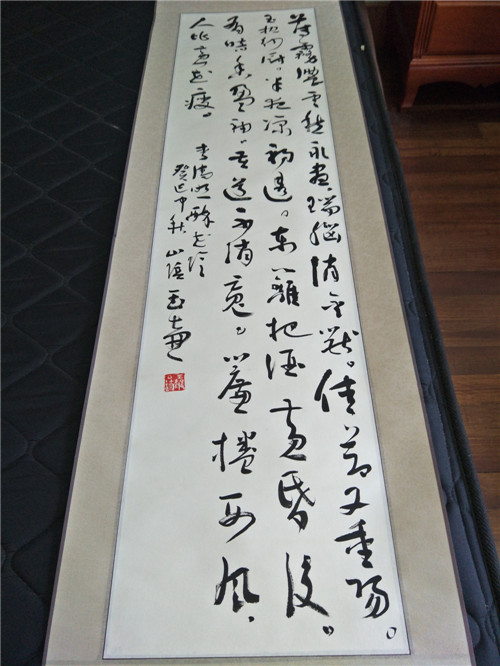 薄霧濃雲愁永晝。瑞腦消金獸。佳節又重陽。
玉枕紗厨。半夜涼初透。東籬把酒黃昏後。
有暗香盈袖。莫道不消魂。簾捲西風、
人比黃花瘦。
李清照醉花陰
癸巳中秋 山陰